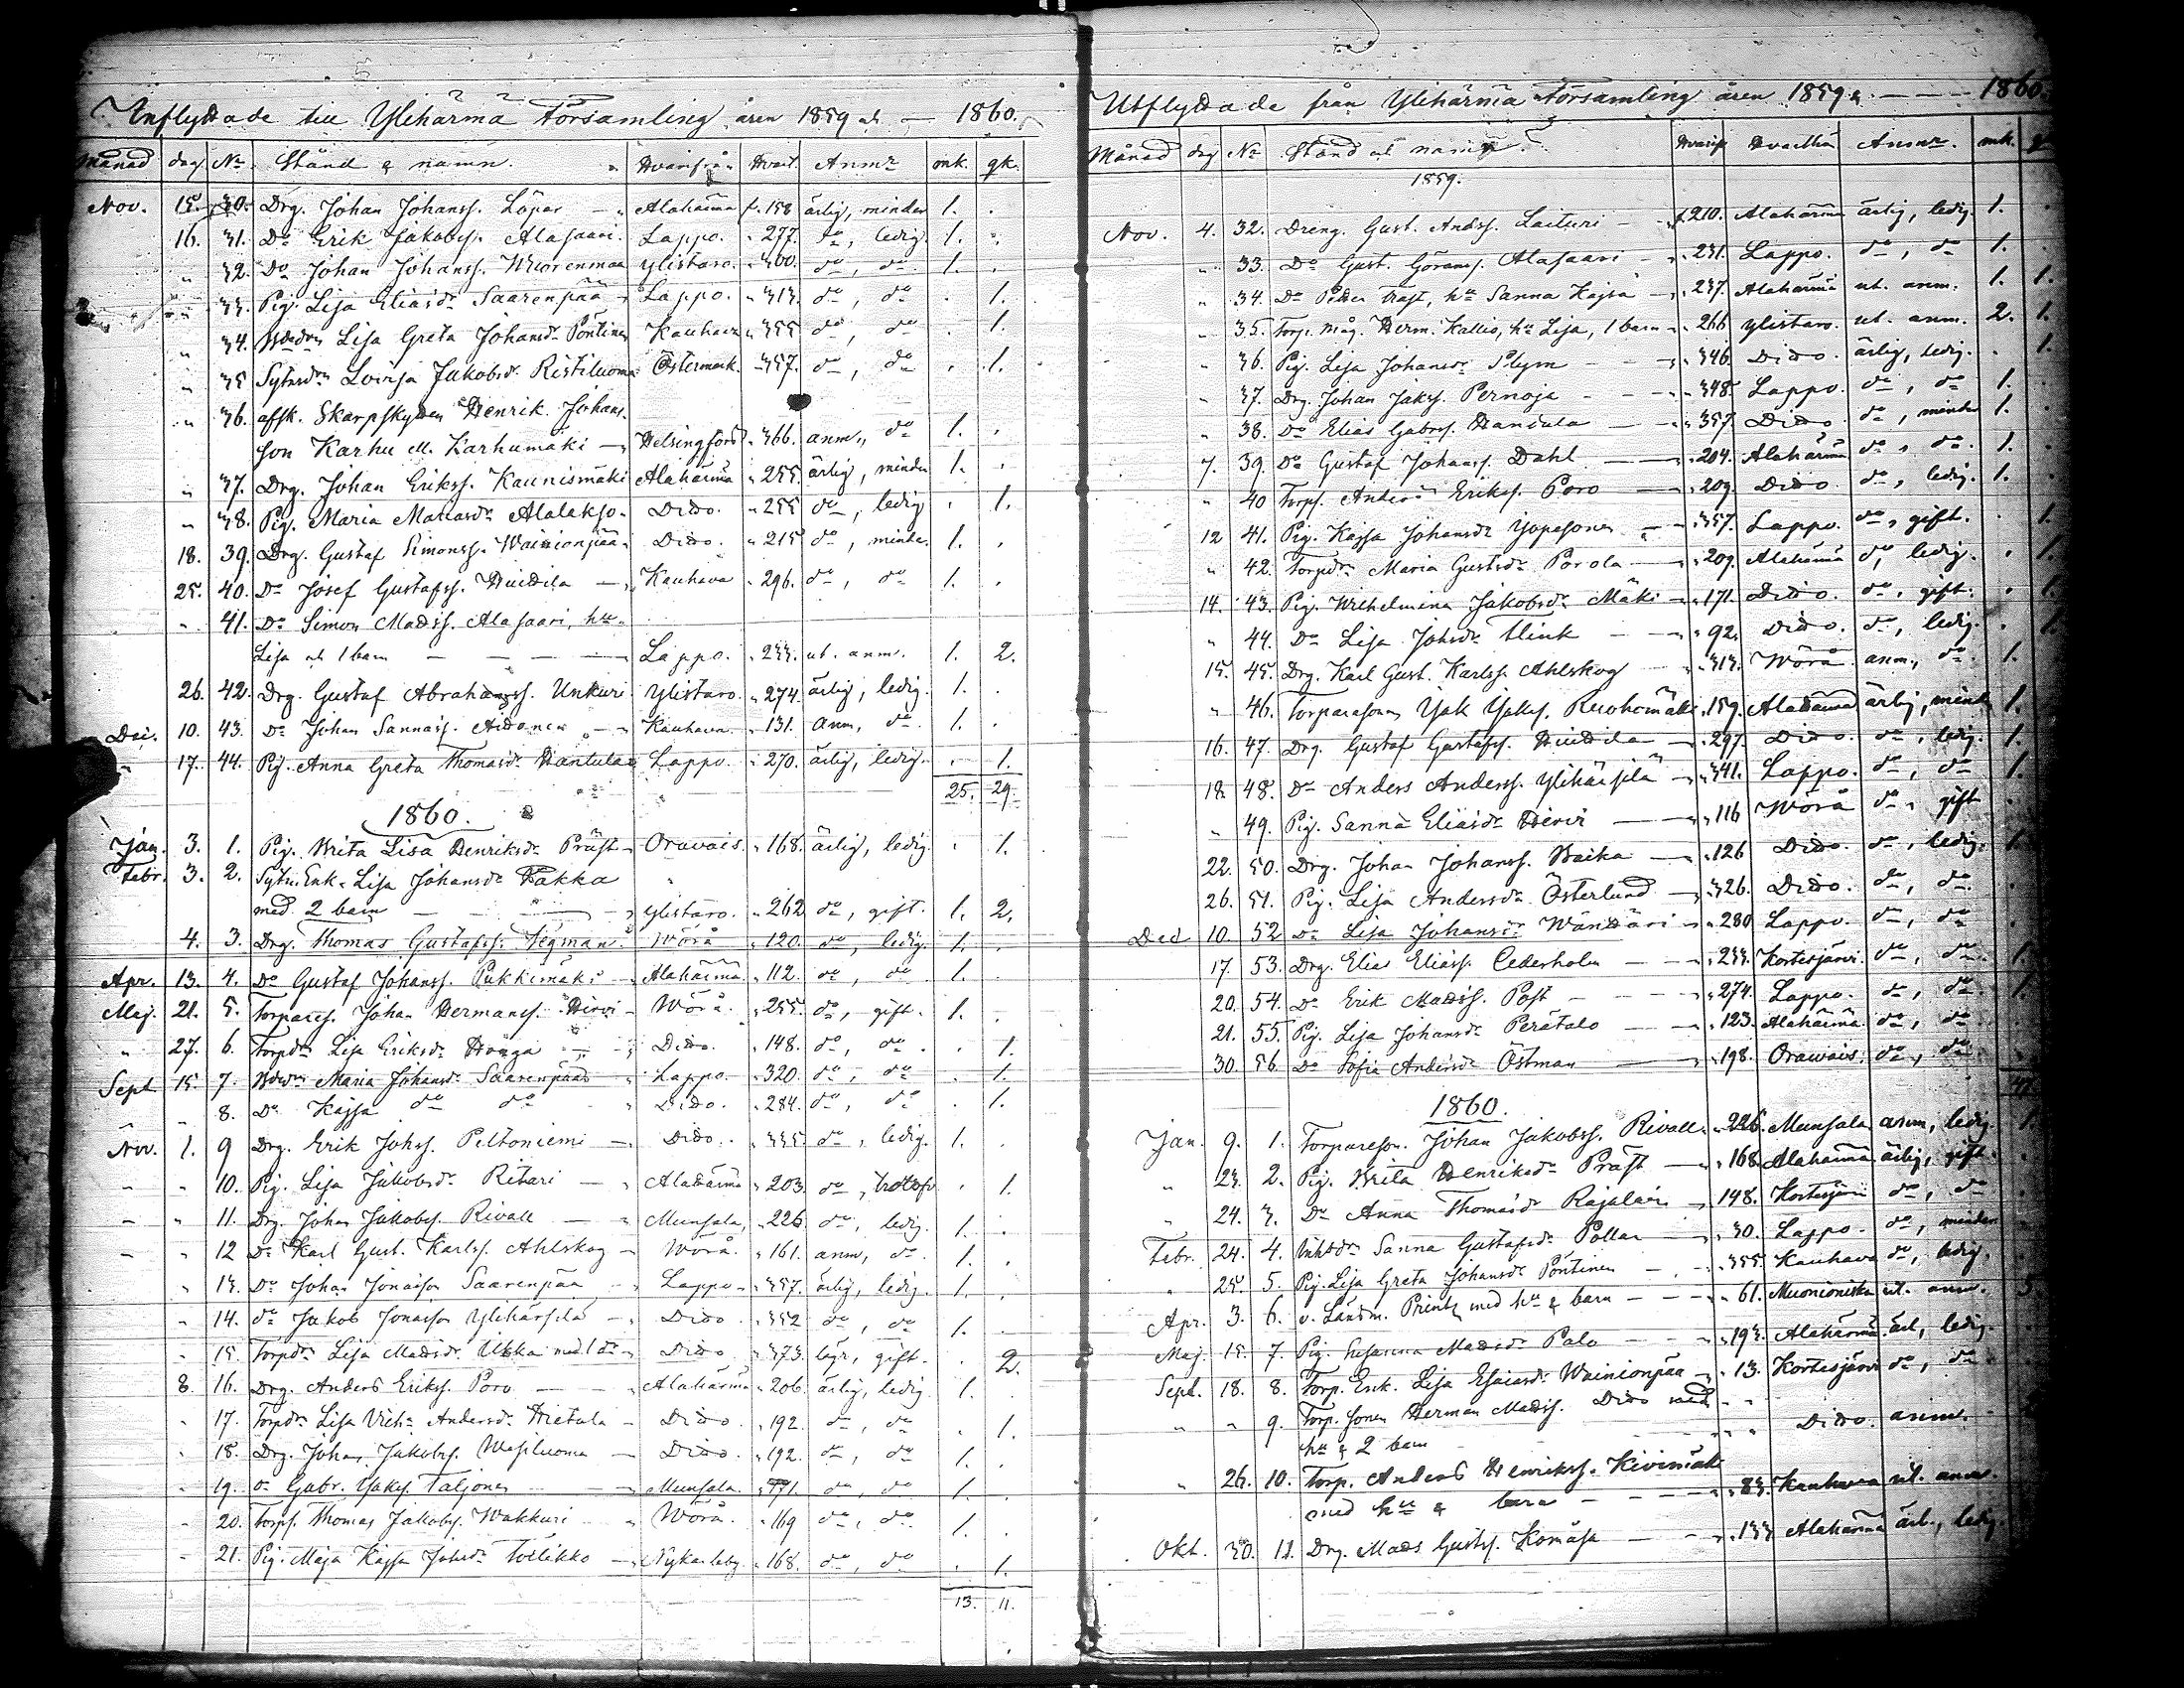 Inflyttade till Ylihärmä Församling åren 1859 och — 1860.
Månad dag No Stånd & namn. Hvarifrån Hvart. Anmr mk. qk.
Nov. 15. 30. Drg. Johan Johanss. Löpar — Alahärmä f. 158 ärlig, minder 1. .
16. 31. Do Erik Jakobss. Alasaari. Lappo. " 277. do, ledig. 1. .
" 32. Do Johan Johanss. Wuorenmaa Ylistaro. " 300. do, do 1. .
" 33. Pig. Lisa Eliasdr Saarenpää Lappo. " 313. do, do . 1.
" 34. Lisa Greta Johansdr Pöntinen Kauhava " 355 do, do . 1.
" 35 Lovisa Jakobsdr Ristiluoma Östermark. " 357. do, do . 1.
" 36. afsk. Skarpskytten Henrik Johans
son Karhu Karhumäki — Helsingfors " 366. anm., do 1. .
" 37. Drg. Johan Erikss. Kaunismäki Alahärmä " 255. ärlig, minder 1. .
" 38. Pig. Maria Matiasdr Alalakso Dido. " 255 do, ledig . 1.
18. 39. Drg. Gustaf Simonss. Wainionpää Dido. " 215 do, minder. 1. .
25. 40. Do Josef Gustafss. Huidila — Kauhava " 296. do, do 1. .
" 41. Do Simon Madss. Alasaari, hu
Lisa och 1 barn — — — Lappo. " 233. ut. anm. 1. 2.
26. 42. Drg. Gustaf Abrahamss. Unkuri Ylistaro. " 274. ärlig, ledig. 1. .
Dec. 10. 43. Do Johan Sannass. Aidonen — Kauhava. " 131. anm, do 1. .
" 17. 44. Pig. Anna Greta Thomasdr Hantula Lappo. " 270. ärlig, ledig. . 1.
25. 29.
1860.
Jan. 3. 1. Pig. Brita Lisa Henriksdr Präst Oravais. " 168. ärlig, ledig . 1.
Febr. 3. 2. Enk. Lisa Johansdr Pakka
med 2 barn — — Ylistaro. " 262 do, gift. 1. 2.
4. 3. Drg. Thomas Gustafss. Tegman. Wörå " 120. do, ledig. 1. .
Apr. 13. 4. Do Gustaf Johanss. Pukkimäki Alahärmä. " 112. do, do 1. .
Maj. 21. 5. Torpares. Johan Hermanss. Hirvi Wörå. " 255. do, gift. 1. .
" 27. 6. Torpdr Lisa Eriksdr Haaga Dido. " 148. do, do . 1.
Sept. 15. 7. Maria Johansdr Saarenpää Lappo. " 320. do, do . 1.
" 8. Do Kajsa do do Dido. " 284. do, do . 1.
Nov. 1. 9 Drg. Erik Johss. Peltoniemi — Dido. " 335. do, ledig. 1. .
" " 10. Pig. Lisa Jakobsdr Ritari — Alahärmä " 203. do, . 1.
" " 11. Drg. Johan Jakobss. Rivall — Munsala, " 226 do, ledig. 1. .
" " 12 Do Karl Gust. Karlss. Ahlskog Wörå. " 161. anm, do 1. .
" 13. Do Johan Jonasson Saarenpää Lappo. " 357. ärlig, ledig. 1. .
" 14. do Jakob Jonasson Ylihärsilä Dido " 352 do, do 1. .
" 15. Torpdr Lisa Madsdr Ukka Dido " 373. lägr, gift. . 2.
8. 16. Drg. Anders Erikss. Poro — Alahärmä " 206. ärlig, ledig 1. .
" 17. Torpdr Lisa Andersdr Hietala Dido " 192. do, do . 1.
" 18. Drg. Johan Jakobss. Wasiluoma Dido. " 192. do, do 1. .
" 19. do Gabr. Jakss. Taljonen — Munsala. do, do 1. .
" 20. Torps. Thomas Jakobss. Wakkuri Wörå. " 169 do, do 1. .
" 21. Pig. Maja Kajsa Johsdr Nykarleby " 168. do, do . 1.
13. 11.
Utflyttade från Ylihärmä Församling åren 1859 & — — — 1860.
Månad dag No Stånd och namn. Hvarifr Hvarthän Anmr. mk.
1859.
Nov. 4. 32. Dreng. Gust. Andss. Laituri — f. 210. Alahärmä ärlig, ledig. 1.
" 33. Do Gust. Görans. Alasaari — " 231. Lappo. do, do 1.
" 34. Do Petter Trast, hu Sanna Kajsa — " 237. Alahärmä ut. anm. 1. 1.
" 35. Torp. måg. Herm. Kallio, hu Lisa, 1 barn " 266 Ylistaro. ut. anm. 2. 1.
" 36. Pig. Lisa Johansdr Plym — — " 346. Dido. ärlig, ledig. . 1.
" 37. Drg. Johan Jakss. Pernoja — — " 348. Lappo. do, do 1.
" 38. Do Elias Gabrss. Hantula — " 357. Dido. do, minder 1.
7. 39. Do Gustaf Johanss. Dahl — " 204. Alahärmä do, do. 1.
" 40 Torps. Anders Erikss. Poro — " 209. Dido. do, ledig. 1.
12 41. Pig. Kajsa Johansdr — " 357. Lappo. do, gift. . 1.
" 42. Torpdr Maria Gustsdr Porola — " 209. Alahärmä do, ledig. . 1.
14. 43. Pig. Wilhelmina Jakobsdr Mäki — " 171. Dido. do, gift. . 1.
" 44. Do Lisa Johsdr Flink — — " 92. Dido. do, ledig. . 1.
15. 45. Drg. Karl Gust. Karlss. Ahlskog — " 313. Wörå. anm., do. 1.
" 46. Torparesonen Jak Jakss. Ruohomäki " 159. Alahärmä ärlig, mind 1.
16. 47. Drg. Gustaf Gustafss. Huidila — " 297. Dido. do, ledig. 1.
18. 48. Do Anders Anderss. Ylihärsilä — " 341. Lappo. do, do 1.
" 49. Pig. Sanna Eliasdr Hirvi — " 116 Wörå do, gift .
22. 50. Drg. Johan Johanss. Waika — " 126 Dido. do, ledig. 1.
26. 51. Pig. Lisa Andersdr Österlund — " 326. Dido. do, do .
Dec 10. 52 Do Lisa Johansdr Wändäri " 280 Lappo. do, do .
17. 53. Drg. Elias Eliass. Cederholm — — " 233. Kortesjärvi. do, do. 1.
20. 54. Do Erik Madss. Post — — " 274. Lappo. do, do. 1.
21. 55. Pig. Lisa Johansdr Perätalo — — " 123. Alahärmä. do, do
30. 56. Do Sofia Andersdr Östman — " 198. Orawais. do, do
1860.
Jan. 9. 1. Torpareson. Johan Jakobss. Rivall. " 226. Munsala. anm, ledig. 1.
" 23. 2. Pig. Brita Henriksdr Präst — " 168. Alahärmä ärlig, gift.
" 24. 3. Do Anna Thomasdr Rajalain " 148. Kortesjärvi do, do
Febr. 24. 4. Sanna Gustafsdr Pollar — " 30. Lappo. do, minder
" 25. 5. Pig. Lisa Greta Johansdr Pöntinen — " 355. Kauhava do, ledig.
Apr. 3. 6. v. Landm. Printz med hu & barn — — " 61. Muonioniska ut. anm.
Maj. 15. 7. Pig. Susanna Madsdr Palo — — " 193. Alahärmä. ärl, ledig.
Sept. 18. 8. Torp. Enk. Lisa Esaiasdr Wainionpää " 13. Kortesjärvi do, do
" " 9. Torp. sonen Herman Madss. Dido med " "
hu & 2 barn " " Dido. anm.
" 26. 10. Torp. Anders Henrikss. Kivimäki
med hu & barn — — — " 83. Kauhava ut. anm.
Okt. 30. 11. Drg. Mads Gustss. Komäsa — " 133 Alahärmä ärl., ledig.